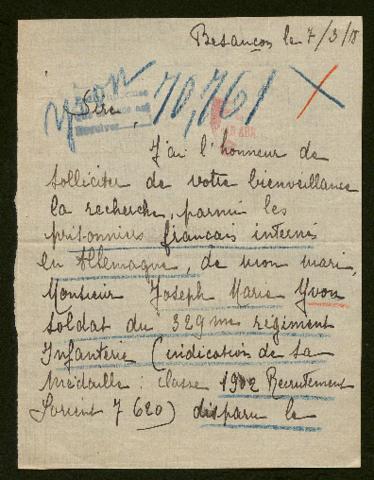 Besançon le 7/3/18
Yvon 70,761
Sire,
J'ai l'honneur de
solliciter de votre bienveillance
la recherche, parmi les
prisonniers français interné
en Allemagne, de mon mari,
Monsieur Joseph Marie Yvon
soldat du 329me régiment
Infanterie (indication de sa
médaille : classe 1902 Recrutement
Lorient 7 620) disparu le